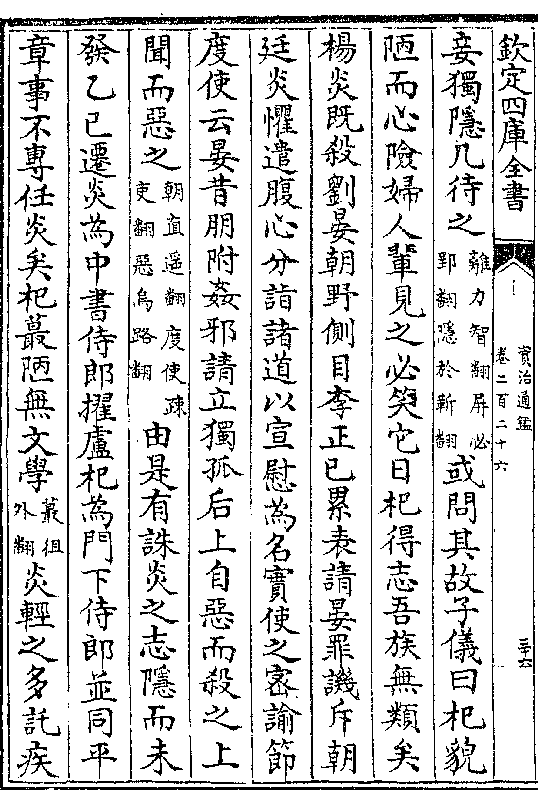 欽定四庫全書
資治通鑑
卷二百二十六
妾獨隱几待之離力智翻屏必郢翻隱於靳翻或問其故子儀曰杞貌
陋而心險婦人輩見之必笑它日杞得志吾族無類矣
楊炎既殺劉晏朝野側目李正己累表請晏罪譏斥朝
廷炎懼遣腹心分詣諸道以宣慰為名實使之密諭節
度使云晏昔朋附姦邪請立獨孤后上自惡而殺之上
聞而惡之朝直遥翻度使疎吏翻惡烏路翻由是有誅炎之志隱而未
發乙巳遷炎為中書侍郎擢盧杞為門下侍郎並同平
章事不專任炎矣杞蕞陋無文學蕞徂外翻炎輕之多託疾